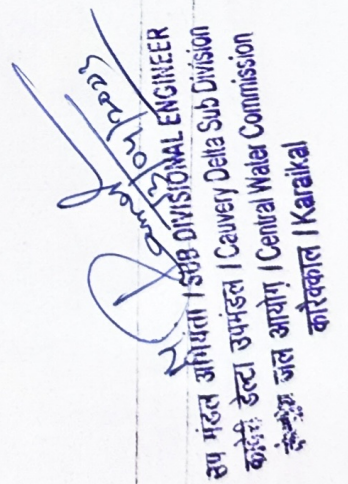 13/04/2023
उप मंडल अभियंता / SUB DIVISIONAL ENGINEER
कावेरी डेल्टा उपमंडल / Cauvery Delta Sub Division
केन्द्रीय जल आयोग / Central Water Commission
कारैक्काल / Karaikal